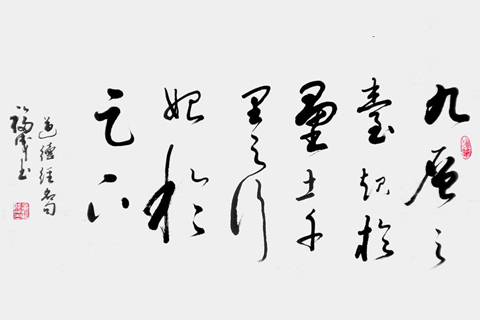 九層之
臺起於
壘土千
里之行
始於
足下
道德經名句